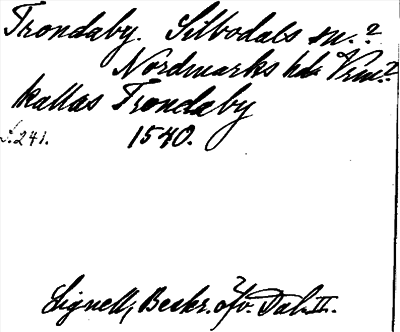 Trondaby. Silbodals sn.?
Nordmarks hd. Vrm.?
kallas Trondaby
S.241. 1540.
Lignell, Beskr. öfv. Dal. II.